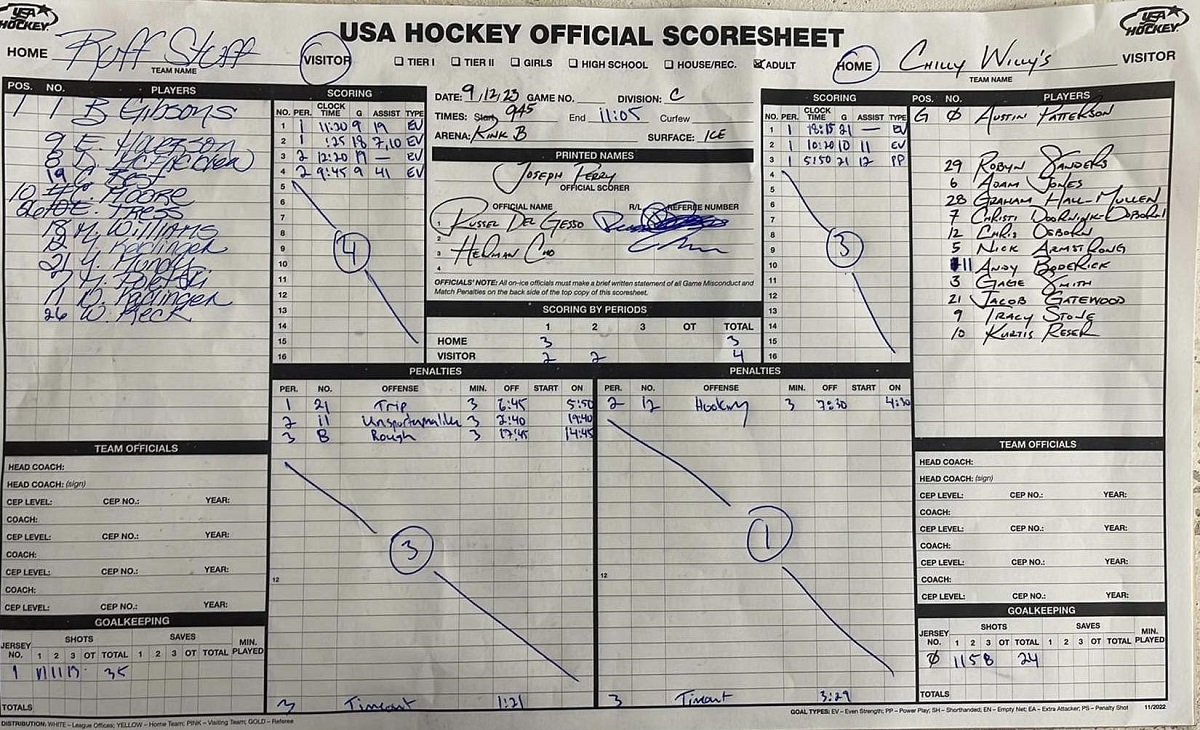 USA HOCKEY
USA HOCKEY OFFICIAL SCORESHEET
USA HOCKEY
HOME Ruff Stuff VISITOR
TEAM NAME
TIER I TIER II GIRLS HIGH SCHOOL HOUSE/REC. ADULT
HOME Chilly Willy's VISITOR
TEAM NAME
POS. NO. PLAYERS
1 1 B Gibsons
9 E.
8
19
10 Moore
E. Tress
18 M. Williams
12
21
7
11
26 W. Keck
SCORING
NO. PER. CLOCK TIME G ASSIST TYPE
1 1 11:20 9 19 EV
2 1 :25 18 7,10 EV
3 2 12:20 19 — EV
4 2 9:45 9 41 EV
5
6
7
8
9
10
11
12
13
14
15
16
4
DATE: 9/12/23 GAME NO. DIVISION: C
TIMES: Start 9:45 End 11:05 Curfew
ARENA: Rink B SURFACE: ICE
PRINTED NAMES
Joseph Perry
OFFICIAL SCORER
OFFICIAL NAME R/L REFEREE NUMBER
1 Russel Del Gesso
2 Herman Cho
3
4
OFFICIALS' NOTE: All on-ice officials must make a brief written statement of all Game Misconduct and
Match Penalties on the back side of the top copy of this scoresheet.
SCORING BY PERIODS
1 2 3 OT TOTAL
HOME 3 3
VISITOR 2 2 4
SCORING
NO. PER. CLOCK TIME G ASSIST TYPE
1 1 18:15 21 — EV
2 1 10:20 10 11 EV
3 1 5:50 21 12 PP
4
5
6
7
8
9
10
11
12
13
14
15
16
3
POS. NO. PLAYERS
G 0 Austin Patterson
29 Robyn Sanders
6 Adam Jones
28 Graham Hall-Mullen
7 Christi Doornink-Osborn
12 Chris Osborn
5 Nick Armstrong
11 Andy Boderick
3 Gage Smith
21 Jacob Gatewood
9 Tracy Stone
10 Kurtis Reser
PENALTIES
PER. NO. OFFENSE MIN. OFF START ON
1 21 Trip 3 6:45 5:50
2 11 3 2:40 19:40
3 8 Rough 3 17:45 14:45
3
12
3 Timeout 1:21
PENALTIES
PER. NO. OFFENSE MIN. OFF START ON
2 12 Hooking 3 7:30 4:30
1
12
3 Timeout 3:29
TEAM OFFICIALS
HEAD COACH:
HEAD COACH: (sign)
CEP LEVEL: CEP NO.: YEAR:
COACH:
CEP LEVEL: CEP NO.: YEAR:
COACH:
CEP LEVEL: CEP NO.: YEAR:
COACH:
CEP LEVEL: CEP NO.: YEAR:
GOALKEEPING
JERSEY NO. SHOTS SAVES MIN. PLAYED
1 2 3 OT TOTAL 1 2 3 OT TOTAL
1 11 11 13 35
TOTALS
TEAM OFFICIALS
HEAD COACH:
HEAD COACH: (sign)
CEP LEVEL: CEP NO.: YEAR:
COACH:
CEP LEVEL: CEP NO.: YEAR:
COACH:
CEP LEVEL: CEP NO.: YEAR:
COACH:
CEP LEVEL: CEP NO.: YEAR:
GOALKEEPING
JERSEY NO. SHOTS SAVES MIN. PLAYED
1 2 3 OT TOTAL 1 2 3 OT TOTAL
0 11 5 8 24
TOTALS
DISTRIBUTION: WHITE – League Offices; YELLOW – Home Team; PINK – Visiting Team; GOLD – Referee
GOAL TYPES: EV – Even Strength; PP – Power Play; SH – Shorthanded; EN – Empty Net; EA – Extra Attacker; PS – Penalty Shot 11/2022